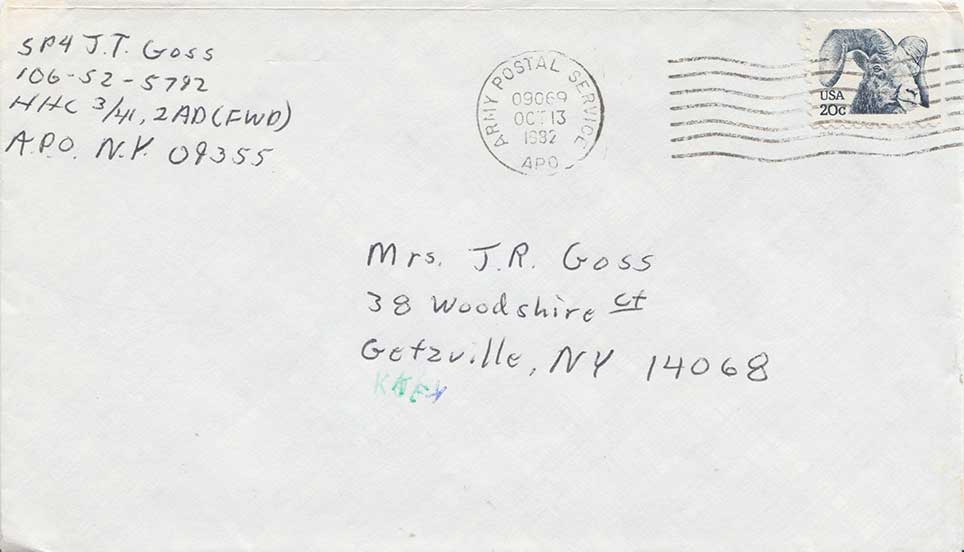 SP4 J.T. Goss
106-52-5792
HHC 3/41, 2AD(FWD)
A.P.O. N.Y. 09355
ARMY POSTAL SERVICE
09069
OCT 13
1982
APO
USA
20c
Mrs. J.R. Goss
38 Woodshire Ct
Getzville, NY 14068